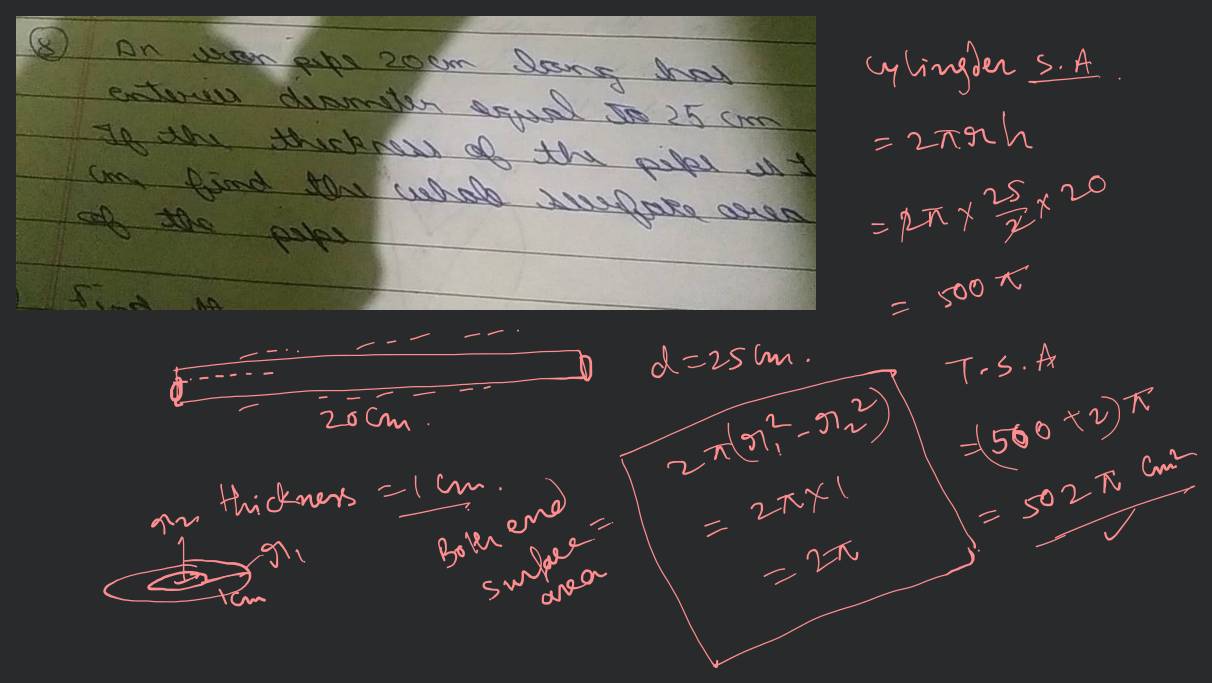 8 An iron pipe 20 cm long has
exterier diameter equal to 25 cm
If the thickness of the pipe is 1
cm, find the whole surface area
of the pipe
find
cylingder S.A.
= 2πrh
= 2π × 25/2 × 20
= 500 π
20 cm.
d = 25 cm.
T.S.A
= (500 + 2) π
= 502 π cm²
thickness = 1 cm.
r₂
r₁
1cm
Both end
surface =
area
2π(r₁² - r₂²)
= 2π × 1
= 2π